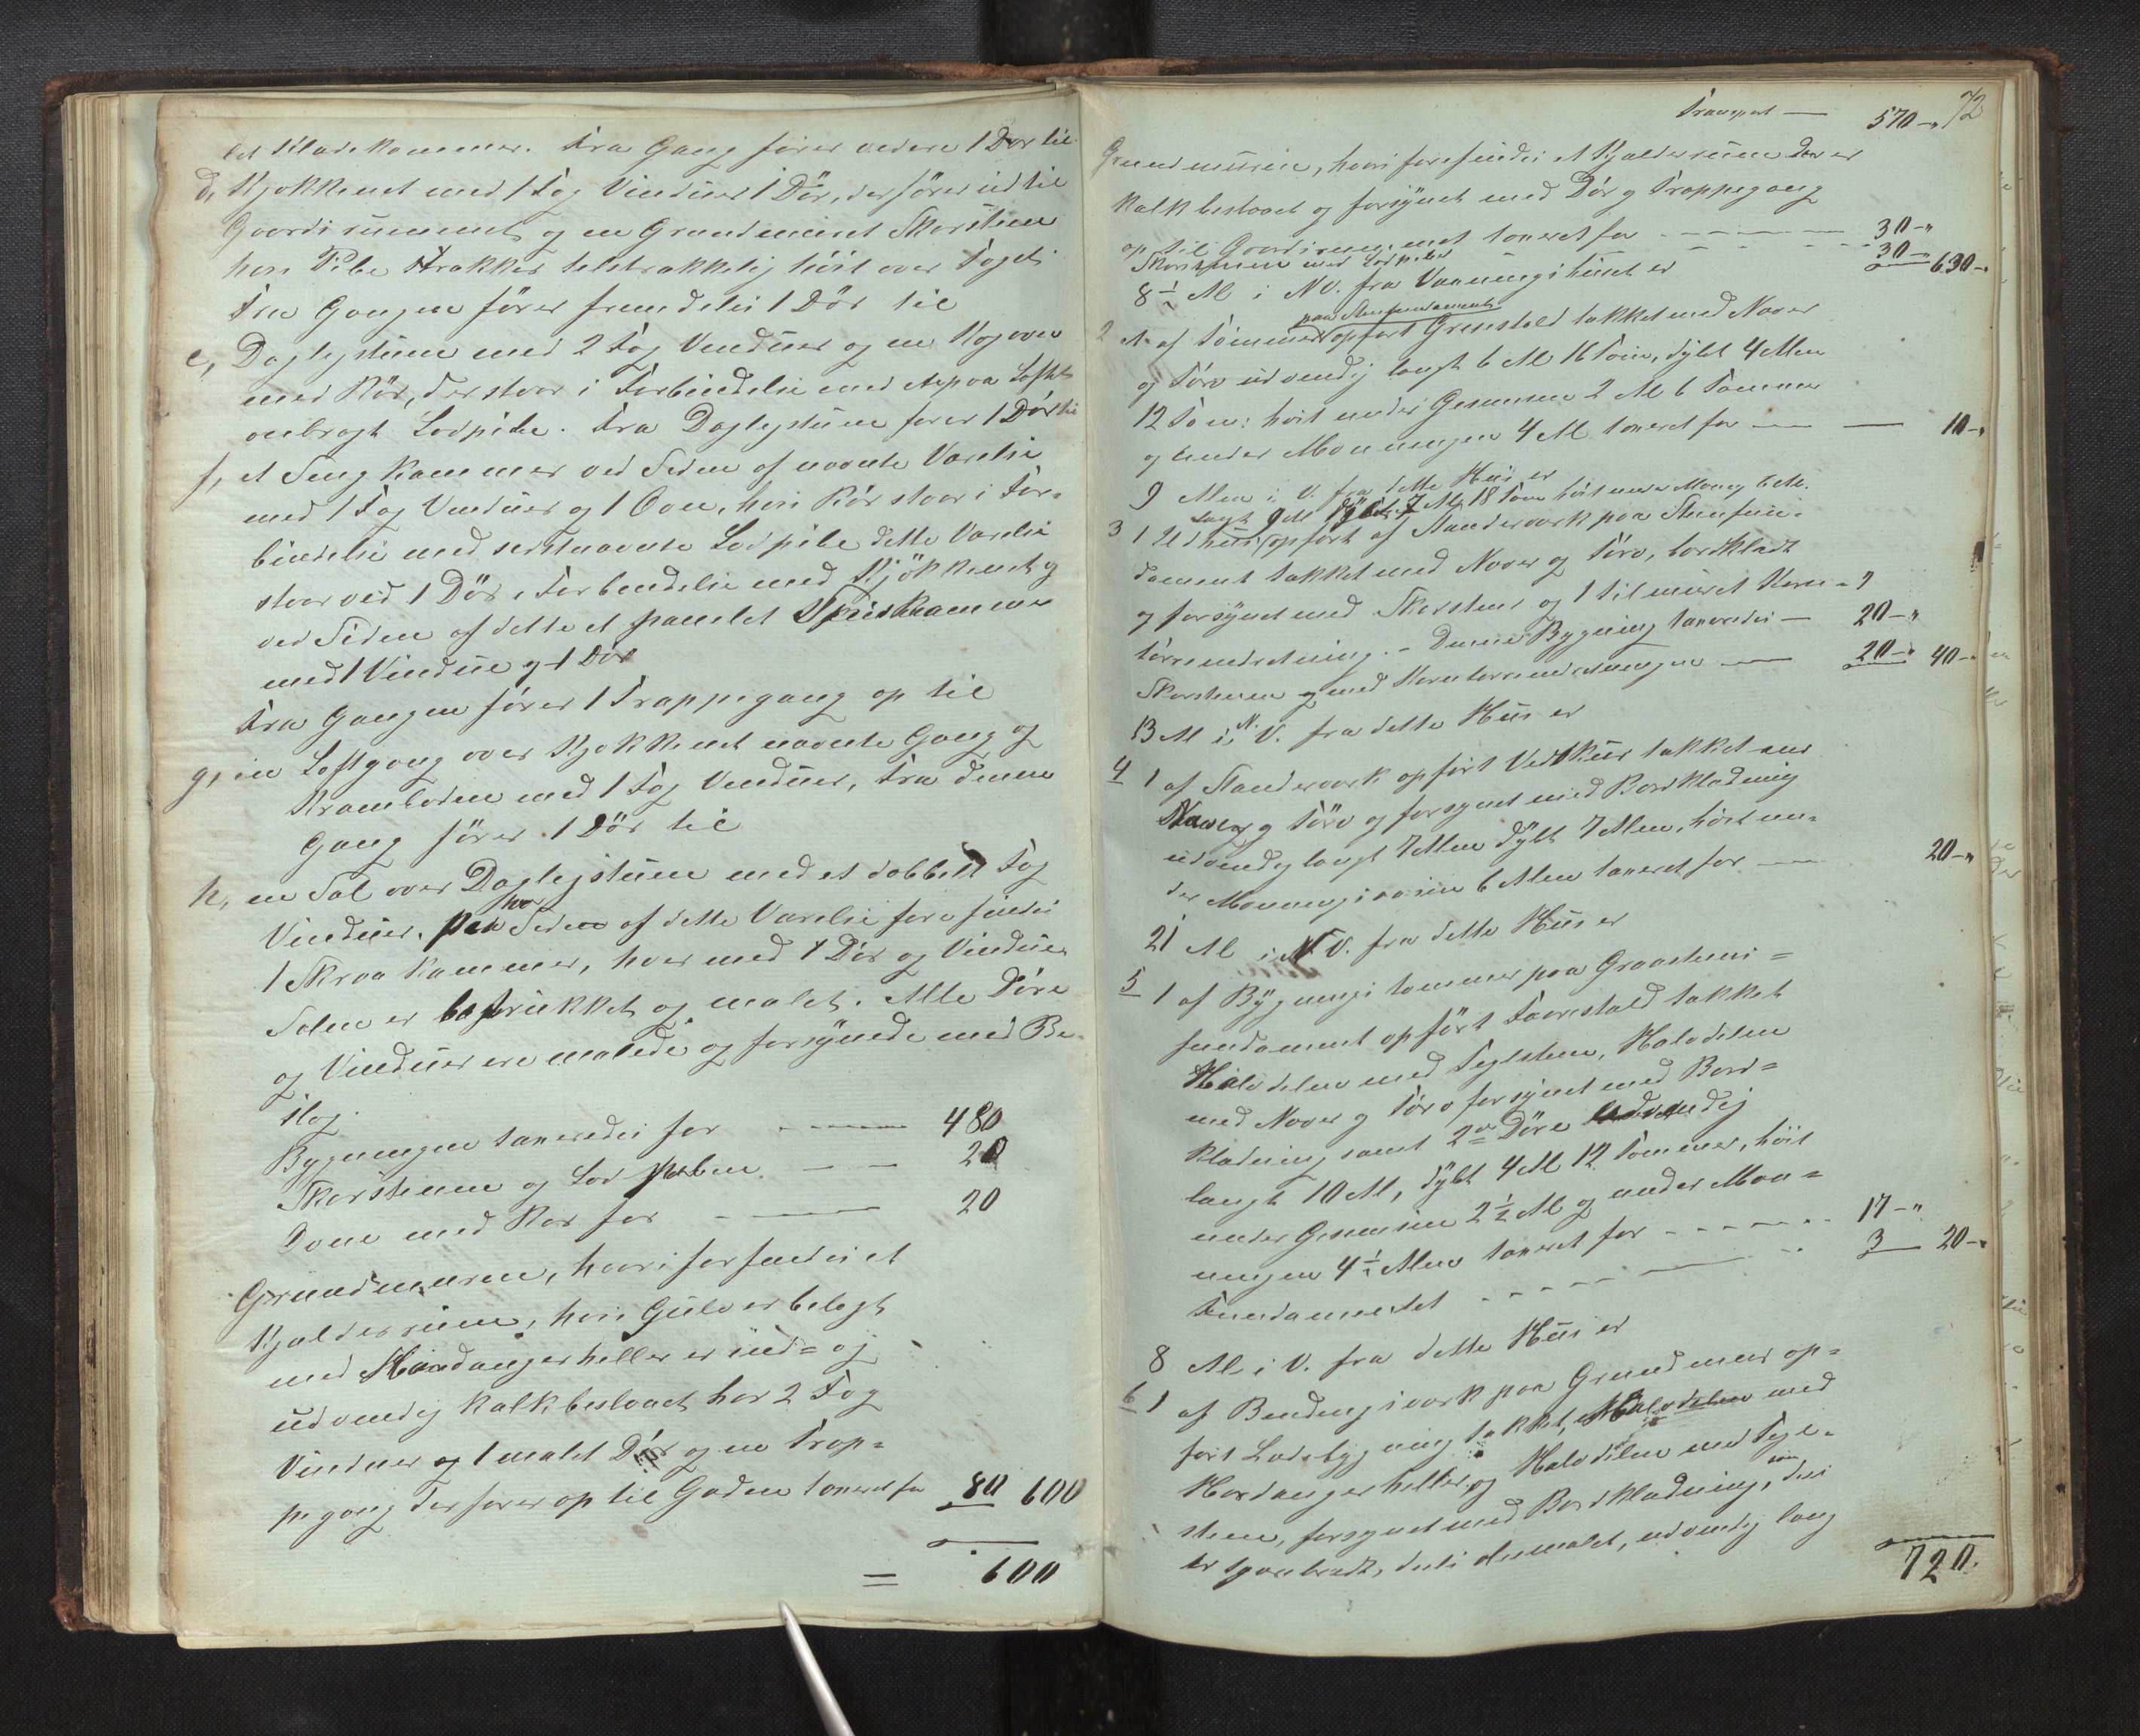 let Klædekammer. Fra Gang fører vedere 1 Dør til
d, Kjøkkenet med 1 Fag Vinduer 1 Dör, der fører ud til
Gaardsrummet og en Grundmuret Skorsteen
hvis Pibe strækker telstrækkelig höit over Taget
Fra Gangen förer fremdeles 1 Dör til
e, Daglejstuen med 2 Fag Vinduer og en Kogoven
med Rör, der staar i Forbindelse med en paa Loftet
anbragt Lodpibe. Fra Daglejstuen fører 1 Dör til
f, et Seng kammer ved Siden af nævnte Værelse
med 1 Fag Vinduer og 1 Oven, hvis Rör staar i For-
bindelse med sidstnævnte Lodpibe dette Værelse
staar ved 1 Dör i Forbindelse med Kjökkenet og
ved Siden af dette et panelet Spiiskammer
med 1 Vindue og 1 Dör
Fra Gangen förer 1 Trappegang op til
g, en Loftgang over Kjøkkenet nævnte Gang og
Kramboden med 1 Fag Vinduer, Fra denne
Gang förer 1 Dör til
h, en Sal over Daglejstuen med et dobbelt Fag
Vinduer. paa hver Side af dette Værelse forefindes
1 Skraakammer, hver med 1 Dör og Vindue
Salen er betrukket og malet. Alle Döre
og Vinduer ere malede og forsynede med Be-
slag.
Bygningen taxeredes for 480
Skorstenen og Lodpiben 20
Ovne med Rör for 20
Grundmuren, hvori forfindes et
Kjelderrum, hvis Gulv er belagt
med Hardangerheller er ind= og
udvendig kalkbeslaaet har 2 Fag
Vinduer og 1 malet Dör og en Trap=
pegang der fører op til Gaden taxeret for 80 600
= 600
Transport — 570-„ 72
Grundmuren, hvori forefindes et Kjelderrum der er
kalkbeslaaet og forsynet med Dör og Trappegang
op til Gaardsrummet taxeret for 30-„
Skorstenen med Lodpibe 30-„ 630-„
8 ½ Al i NV. fra Vaaningshuset er
paa Steenfundament
2 et af Tömmer opfört Grisestald tækket med Næver
og Törv udvendig langt 6 Al 16 Tom, dybt 4 Alen
12 Tom: höit under Gesimsen 2 Al 6 Tommer
og under Mønningen 4 Al taxeret for 10-„
9 Alen i V. fra dette Huus er
langt 9 Al dybt 7 Al 18 Tom höit under Møng 6 Al.
3 1 Ildhuus opfört af Standerværk paa Steenfun-
dament tækket med Næver og Törv, bordklædt
og forsynet med Skorsteen og 1 tilmuret Korn-
törreindretning. - Denne Bygning taxeredes — 20-„
Skorstenen og med Korntørreindretningen — 20-„ 40-„
13 Al i N. V. fra dette Huus er
4 1 af Standerværk opfört Vedskuur tækket med
Næver og Törv og forsynet med Bordklædning
udvendig langt 7 Alen dybt 7 Alen, höit un-
der Mønningsaasen 6 Alen taxeret for — 20-„
21 Al i NV. fra dette Huus er
5 1 af Bygningstømmer paa Graasteens=
fundament opfört Faarestald tækket
Halvdelen med Teglsteen, Halvdelen
med Næver og Törv forsynet med Bord=
klædning samt 2de Döre udvendig
langt 10 Al, dybt 4 Al 12 Tommer, höit
under Gesimsen 2 ½ Al og under Møn=
ningen 4 ½ Alen taxeret for 17-„
Fundamentet 3 20-„
8 Al i V. fra dette Huus er
6 1 af Bindingsværk paa Grundmuur op=
fört Ladebygning tækket, Halvdelen med
Hardangerheller og Halvdelen med Tegl-
steen, forsynet med Bordklædning, som deels
er sponbrædt, deels umalet, udvendig lang
720.